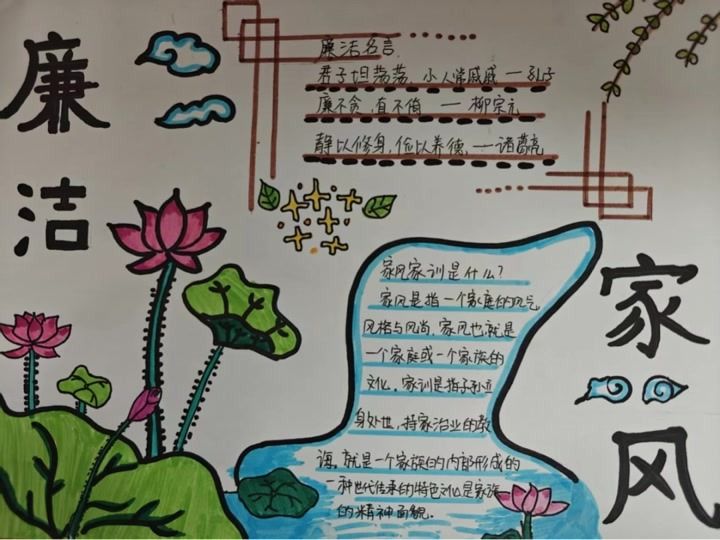 廉洁
廉洁名言.
君子坦荡荡,小人常戚戚 — 孔子
廉不贪,直不倚 — 柳宗元
静以修身,俭以养德,— 诸葛亮
家风
家风家训是什么?
家风是指一个家庭的风气,
风格与风尚,家风也就是
一个家庭或一个家族的
文化,家训是指子孙立
身处世,持家治业的教
诲,就是一个家族的内部形成的
一种世代传承的特色文化是家族
的精神面貌.